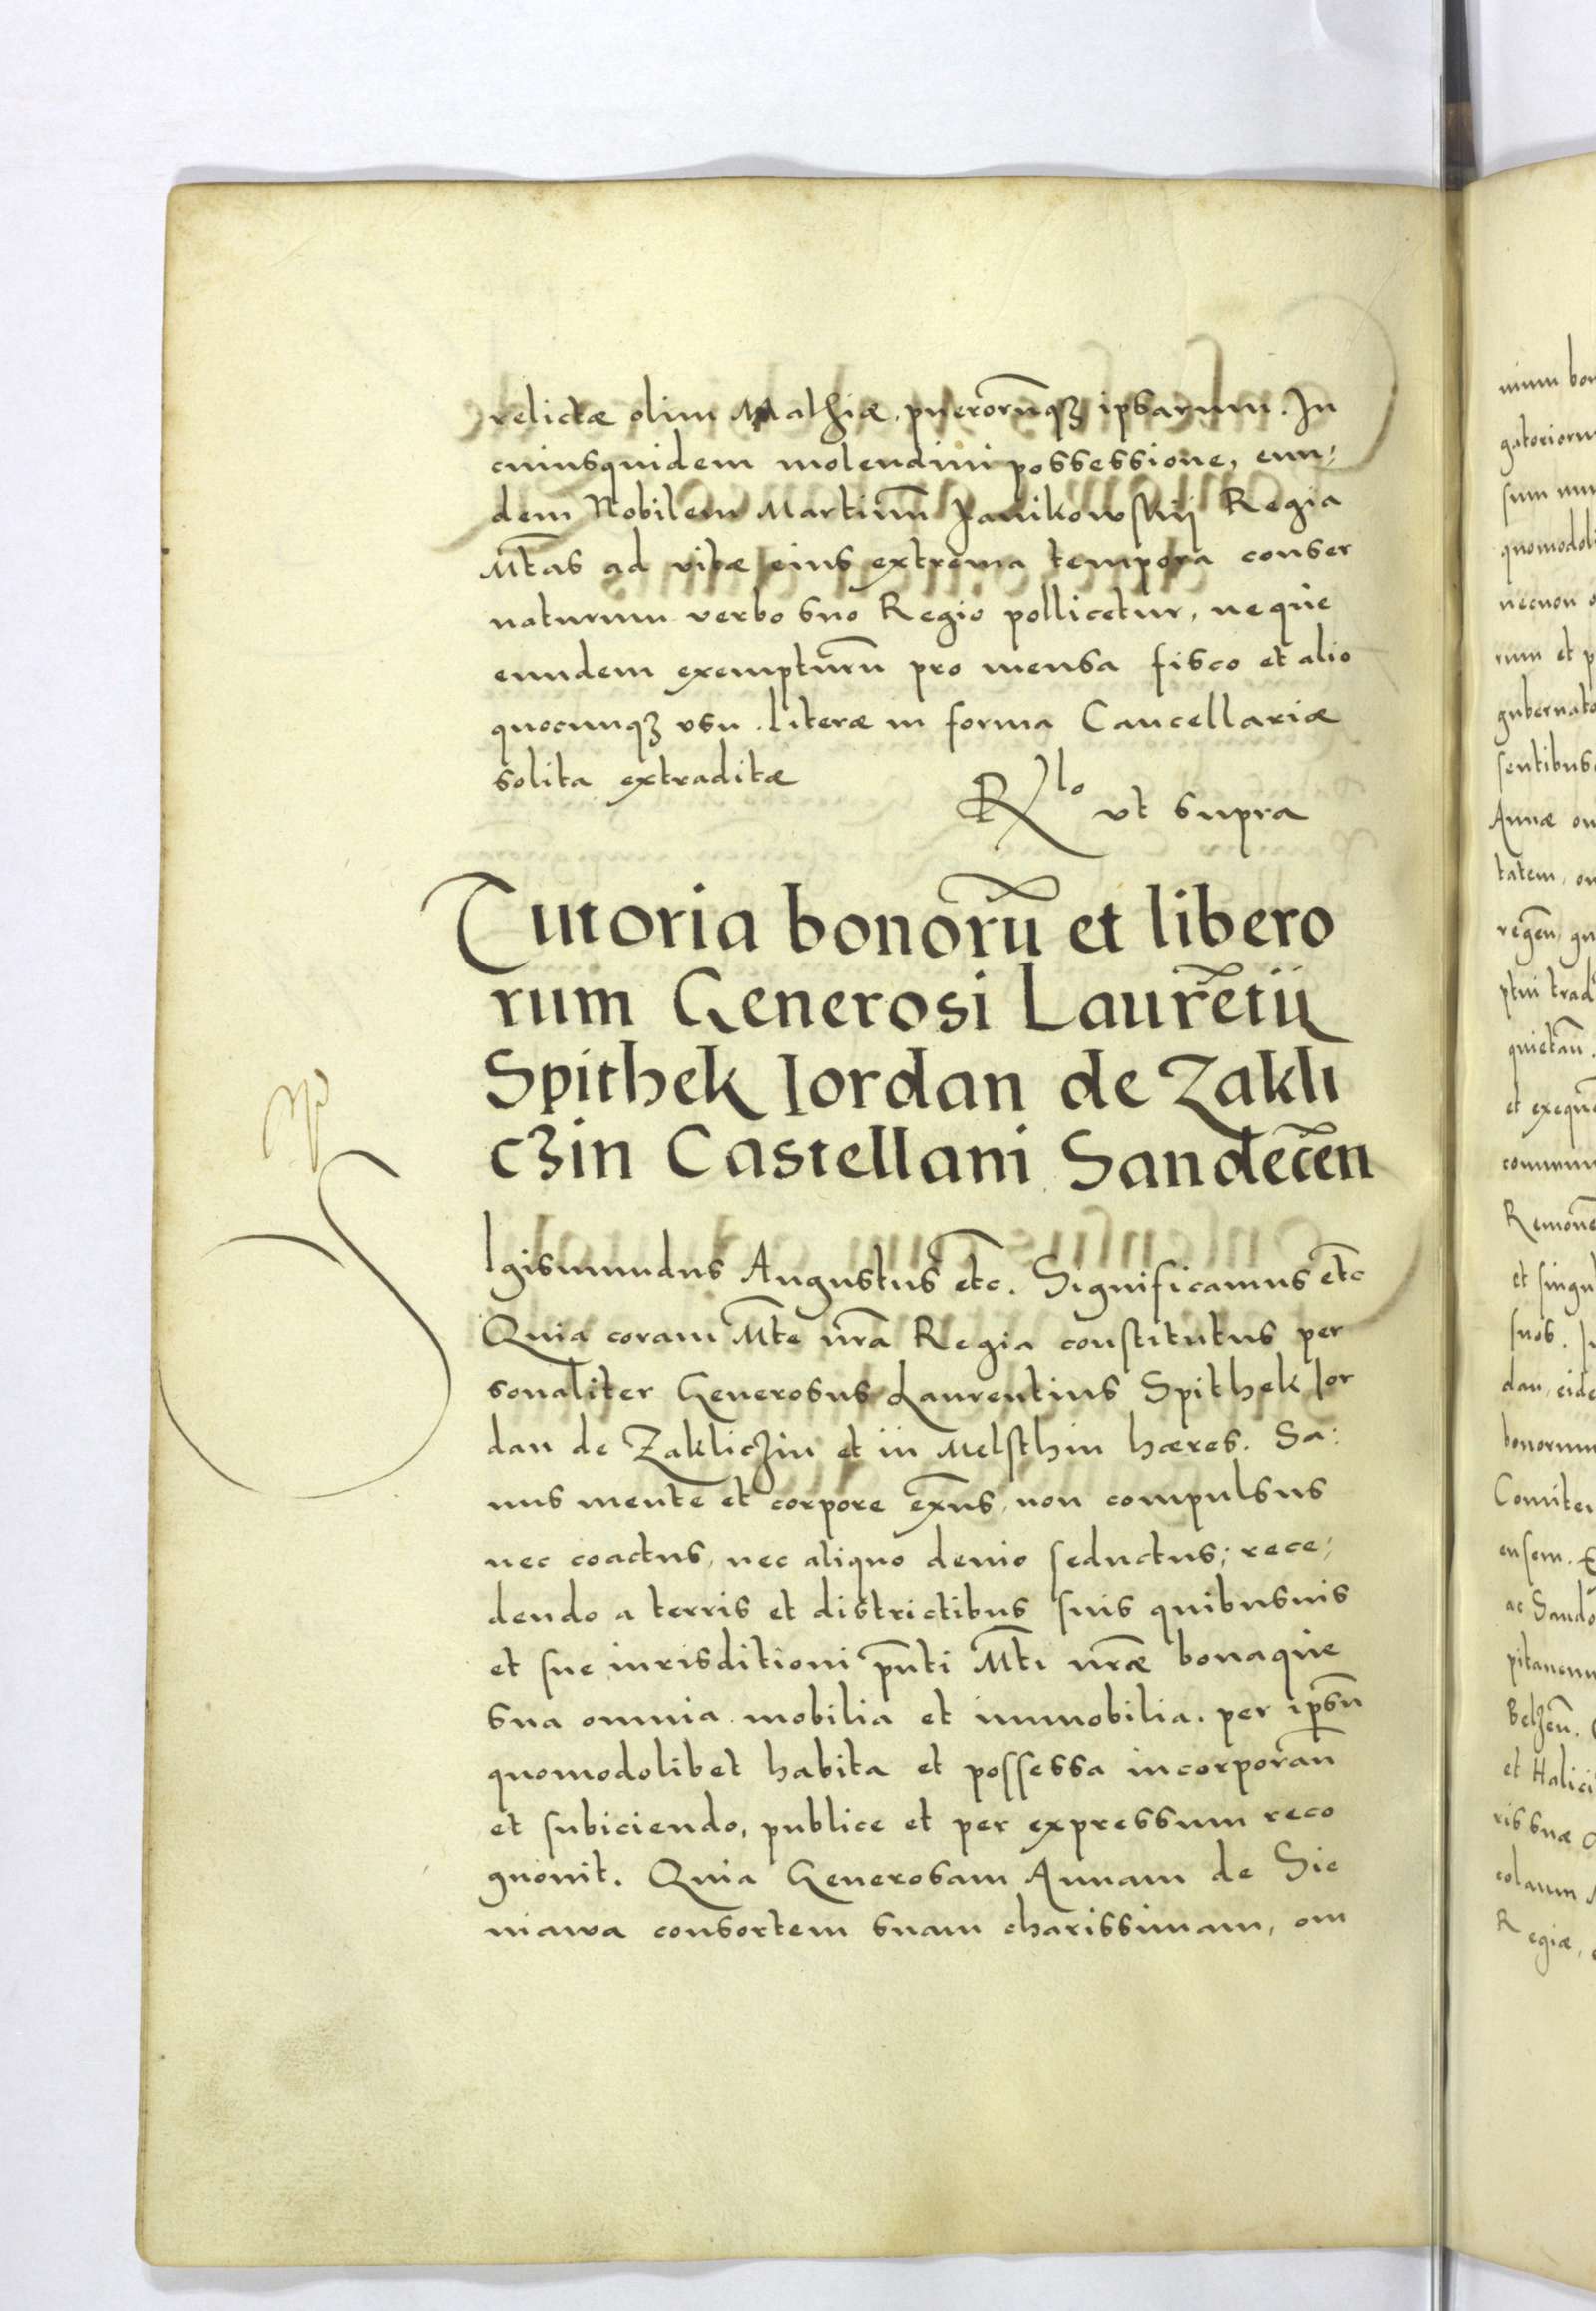 relictæ olim Mathiæ, puerorũqꝫ ipsarum. In
cuiusquidem molendini possessione, eun⸗
dem Nobilem Martinũ Janikowskij Regia
Mt̃as ad vitæ eius extrema tempora conser
uaturum verbo suo Regio pollicetur, neque
eundem exempturũ pro mensa fisco et alio
quocunqꝫ vsu. Literæ in forma Cancellariæ
solita extraditæ
Rlo vt supra
Tutoria bonorũ et libero
rum Generosi Laurẽtii
Spithek Iordan de Zakli
cʒin Castellani Sandecẽn
Sigismundus Augustus etc̃. Significamus etc̃
Quia coram Mt̃e nr̃a Regia constitutus per
sonaliter Generosus Laurentius Spithek Ior
dan de Zakliczin et in Melsthin hæres. Sa:
nus mente et corpore ex̃ns, non compulsus
nec coactus, nec aliquo deuio seductus; rece⸗
dendo a terris et districtibus suis quibusuis
et sue iurisditioni pñti Mt̃i nr̃æ bonaque
sua omnia mobilia et immobilia. per ipsũ
quomodolibet habita et possessa incorporañ
et subiciendo, publice et per expressum reco
gnouit. Quia Generosam Annam de Sie
niawa consortem suam charissimam, om
nium
gatorioru
sum
quomodoli
necnon
rum et p
gubernato
sentibus
Annæ
tatem,
regeñ
ptui trad
quietañ.
et
commun
et singu
suos.
dan, eide
bonorum
Comitem
ensem.
ac Sando
pitaneum
Belzeñ.
et Halici
ris suæ
colaum
Regiæ,